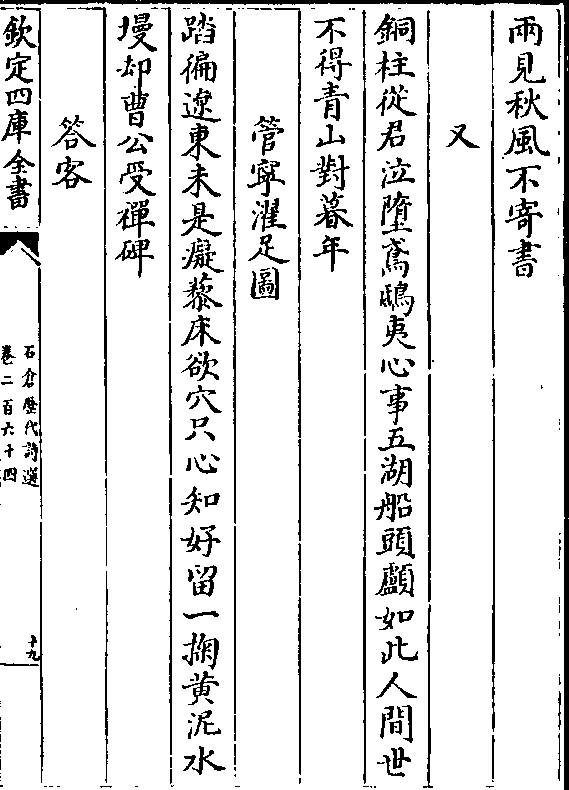 兩見秋風不寄書
又
銅柱從君泣墮鳶鴟夷心事五湖船頭顱如此人間世
不得青山對暮年
管寧濯足圖
踏徧遼東未是癡藜床欲穴只心知好留一掬黃泥水
墁却曹公受禪碑
答客
欽定四庫全書
石倉歷代詩選
卷二百六十四
十九